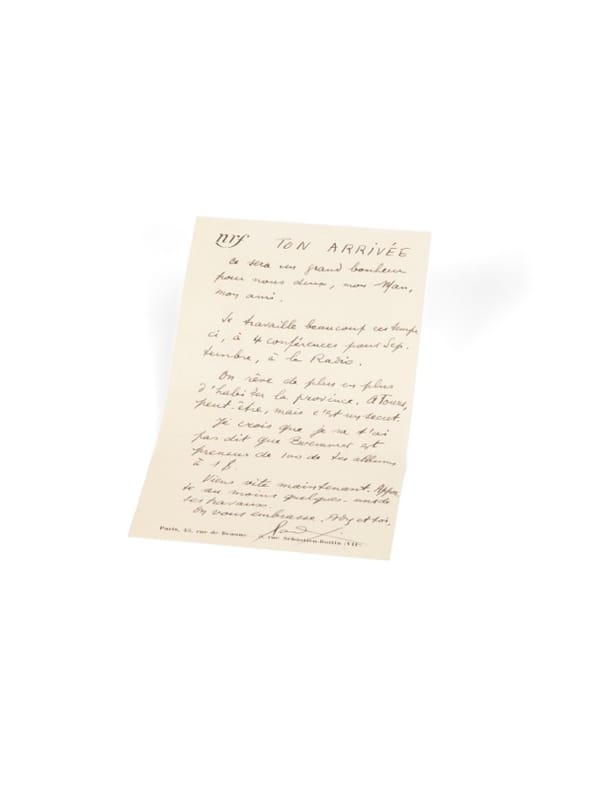 nrf TON ARRIVÉE
Ce sera un grand bonheur
pour nous deux, mon Man,
mon ami.
Je travaille beaucoup ces temps
ci, à 4 conférences pour Sep-
tembre, à la Radio.
On rêve de plus en plus
d'habiter la province. A Tours,
peut-être, mais c'est un secret.
Je crois que je ne t'ai
pas dit que est
preneur de 100 de tes albums
à 1 f.
Viens vite maintenant. Appor
te au moins quelques-uns de
tes travaux.
On vous embrasse. Ady et toi.
Paris, 43, rue de Beaune rue Sébastien-Bottin (VIIe)